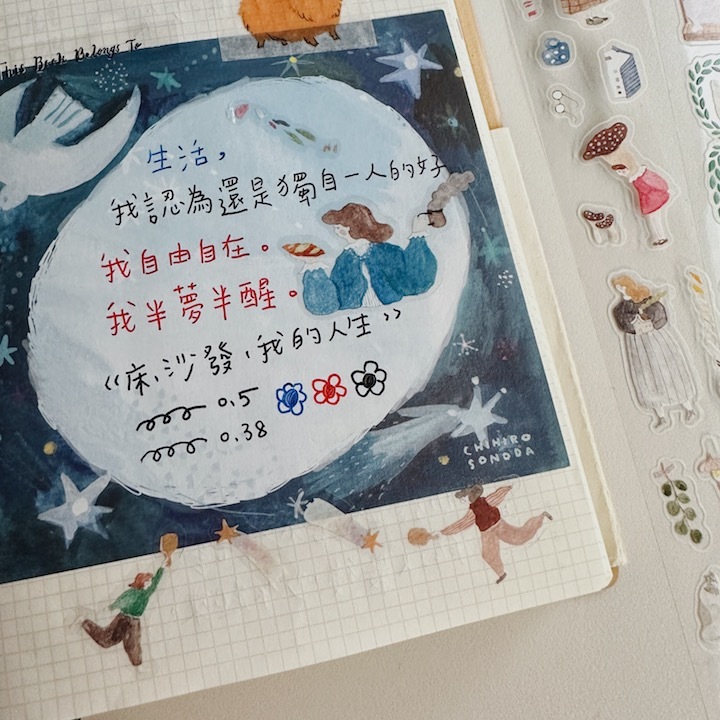 This Book Belongs To
生活，
我認為還是獨自一人的好
我自由自在。
我半夢半醒。
《床，沙發，我的人生》
0.5
0.38
CHIHIRO
SONODA